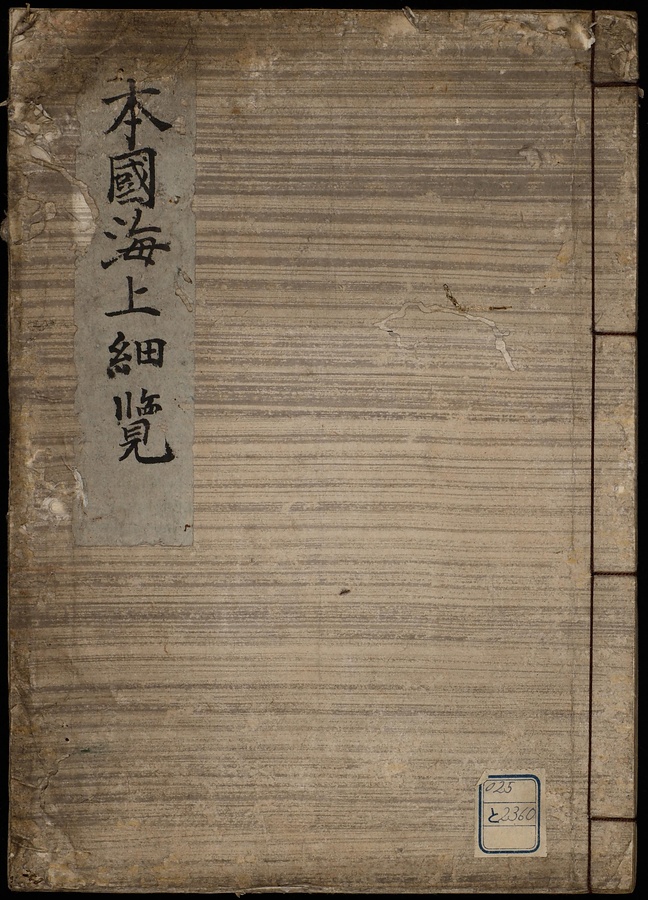 本國海上細覽
025
と2360